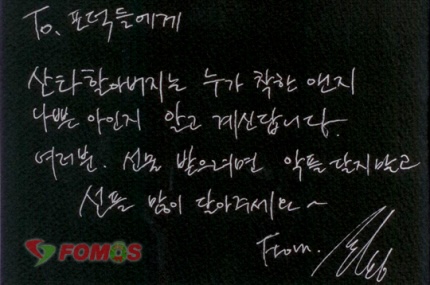 To. 포덕들에게
산타할아버지는 누가 착한 앤지
나쁜 아인지 알고 계신답니다.
여러분. 선물 받으려면 악플 달지말고
선플 많이 달아주세요~
From.
FOMOS